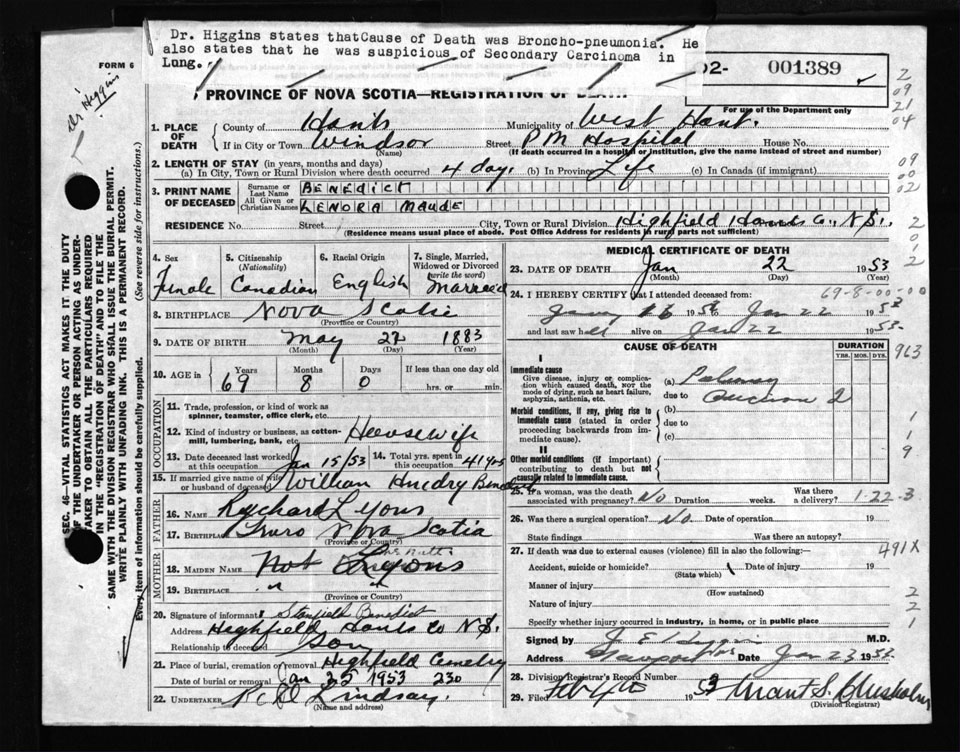 Dr. Higgins states thatCause of Death was Broncho-pneumonia. He
also states that he was suspicious of Secondary Carcinoma in
Lung.
FORM 6
Dr Higgins
02- 001389
PROVINCE OF NOVA SCOTIA—REGISTRATION OF DEATH
For use of the Department only
1. PLACE OF DEATH
County of Hants Municipality of West Hant.
If in City or Town Windsor Street P M Hospital House No.
(Name) (If death occurred in a hospital or institution, give the name instead of street and number)
2. LENGTH OF STAY (in years, months and days)
(a) In City, Town or Rural Division where death occurred 4 day. (b) In Province Life (c) In Canada (if immigrant)
3. PRINT NAME OF DECEASED
Surname or Last Name BENEDICT
All Given or Christian Names LENORA MAUDE
RESIDENCE No. Street City, Town or Rural Division Highfield Hants Co., N.S.
(Residence means usual place of abode. Post Office Address for residents in rural parts not sufficient)
4. Sex Female
5. Citizenship (Nationality) Canadian
6. Racial Origin English
7. Single, Married, Widowed or Divorced (write the word) Married
8. BIRTHPLACE Nova Scotia
(Province or Country)
9. DATE OF BIRTH May 22 1883
(Month) (Day) (Year)
10. AGE in Years 69 Months 8 Days 0 If less than one day old hrs. or min.
OCCUPATION
11. Trade, profession, or kind of work as spinner, teamster, office clerk, etc.
12. Kind of industry or business, as cotton-mill, lumbering, bank, etc. Housewife
13. Date deceased last worked at this occupation Jan 15/53 14. Total yrs. spent in this occupation 41 yrs
15. If married give name of wife or husband of deceased William Benedict
FATHER
16. NAME Rychard Lyons
17. BIRTHPLACE Truro Nova Scotia
(Province or Country)
MOTHER
18. MAIDEN NAME Not Lyons
19. BIRTHPLACE " "
(Province or Country)
20. Signature of informant Stanfield Benedict
Address Highfield Hants Co N.S.
Relationship to deceased Son
21. Place of burial, cremation or removal Highfield Cemetry
Date of burial or removal Jan 25 1953 230
22. UNDERTAKER Lindsay.
(Name and address)
MEDICAL CERTIFICATE OF DEATH
23. DATE OF DEATH Jan 22 1953
(Month) (Day) (Year)
69-8-00-00
24. I HEREBY CERTIFY that I attended deceased from:
1953 to Jan 22 1953
and last saw h alive on Jan 22 1953
CAUSE OF DEATH DURATION
YRS. MOS. DYS.
I
Immediate cause
Give disease, injury or complication which caused death, not the mode of dying, such as heart failure, asphyxia, asthenia, etc.
(a)
due to
Morbid conditions, if any, giving rise to immediate cause (stated in order proceeding backwards from immediate cause).
(b)
due to
(c)
II
Other morbid conditions (if important) contributing to death but not causally related to immediate cause.
25. If a woman, was the death associated with pregnancy? No Duration weeks. Was there a delivery?
1-22-3
26. Was there a surgical operation? No Date of operation 19
State findings Was there an autopsy?
27. If death was due to external causes (violence) fill in also the following:—
491X
Accident, suicide or homicide? Date of injury 19
(State which)
Manner of injury
(How sustained)
Nature of injury
Specify whether injury occurred in industry, in home, or in public place
Signed by J E Higgins M.D.
Address Newport NS Date Jan 23 1953
28. Division Registrar's Record Number
29. Filed Feb 1953 Grant S. Chisholm
(Division Registrar)
SEC. 46—VITAL STATISTICS ACT MAKES IT THE DUTY
OF THE UNDERTAKER OR PERSON ACTING AS UNDERTAKER TO OBTAIN ALL THE PARTICULARS REQUIRED
IN THE "REGISTRATION OF DEATH" AND TO FILE THE
SAME WITH THE DIVISION REGISTRAR WHO SHALL ISSUE THE BURIAL PERMIT.
WRITE PLAINLY WITH UNFADING INK. THIS IS A PERMANENT RECORD.
Every item of information should be carefully supplied. (See reverse side for instructions.)
2
09
21
04
09
00
02
2
0
2
963
1
9
2
2
1